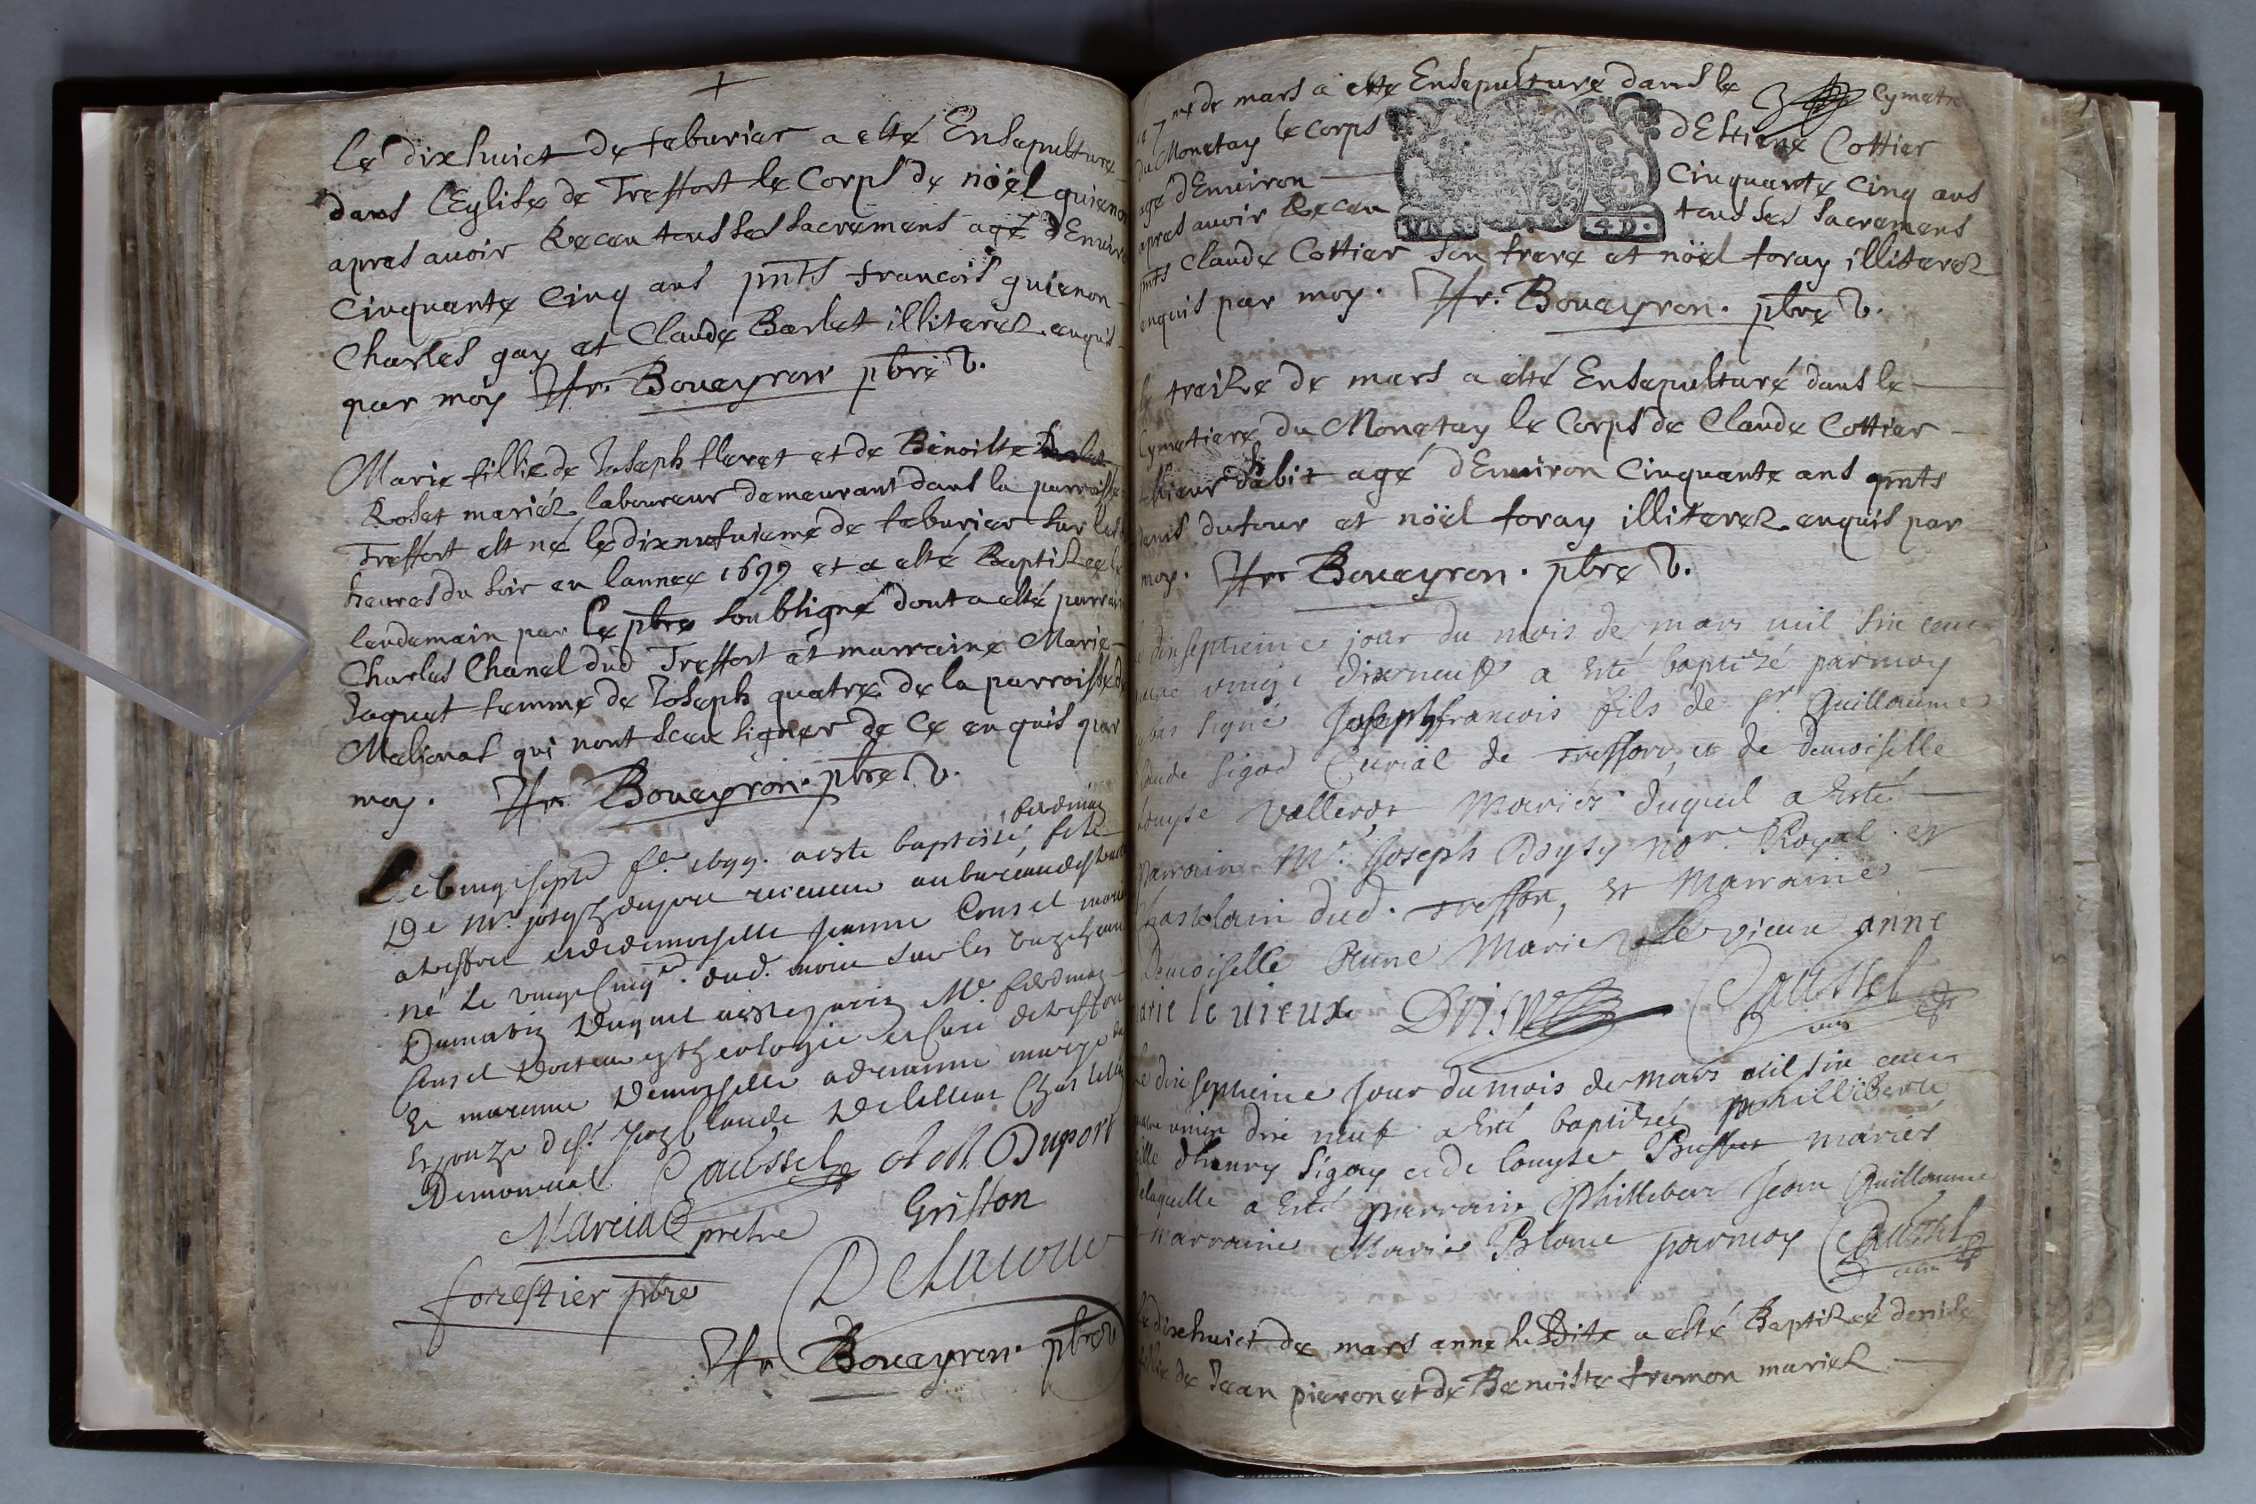 Le dixhuict de feburier a esté Ensepulturé
dans l'Eglise de Treffort le Corps de noël guienon
apres auoir Receu tous ses sacremens agé d'Enuiron
Cinquante Cinq ans pnts francois guienon
Charles gay et Claude Barlet illiterez enquis
par moy Fr. Boueyron pbre V.
Marie fillie de Joseph floret et de Benoiste
Roset mariéz laboureur demeurant dans la parroisse
Treffort est né le dixneufuieme de feburier sur les
heures du soir en lannee 1699 et a esté Baptizee le
lendemain par le pbre soubsigné dont a esté parrain
Charles Chanel dud Treffort et marraine Marie
Jaquet femme de Joseph quatre de la parroisse de
Melionas qui nont sceu signer de ce enquis par
moy. Fr. Boueyron. pbre V.
Le vingt sept 1699. a esté baptisé, ferdinan fils
De Mr. joseph duport receueur au bureau
a treffort et de demoiselle jeanne Consel
né le vingt cinq dud. mois sur les onze heures
Du matin Duquel a este parin Mr. ferdinan
Consel Docteur en theologie et Curé de treffort
Et marenne Demoiselle adrianne
Espouze de Sr. Claude
Caussel Duport
Marcial pretre Griffon
forestier pbre Delacour
Fr. Boueyron. pbre V
le 7me de mars a este Ensepulturé dans le Cymetiere
du Monetay le Corps d'Estiene Cottier
agé d'Enuiron Cinquante Cinq ans
apres auoir Receu tous ses sacremens
pnts Claude Cottier son frere et noël foray illiterez
enquis par moy. Fr. Boueyron. pbre V.
4 D.
le treize de mars a esté Ensepulturé dans le
Cymetiere du Monetay le Corps de Claude Cottier
d'habit agé d'Enuiron Cinquante ans pnts
denis dufour et noël foray illiterez enquis par
moy. Fr. Boueyron. pbre V.
Le dixseptieme jour du mois de mars mil six cent
quatre vingt dixneuf a esté baptizé par moy
soubs signé Joseph francois fils de Sr. Guillaume
Claude Sigod Curial de treffort, et de demoiselle
Louyse Valleros Mariés duquel a esté
parrain Mr. Joseph No.re Royal et
Chastelain dud. treffort, et Marraine
Demoiselle Anne Marie le vieux anne
marie le uieux Caussel
Le dix septieme jour du mois de mars mil six cent
quatre vingt dix neuf a esté baptizée philliberte
fille d'henry Sigoy et de louyse Buffet mariés
delaquelle a esté parrain Philibert Jean Guillaume
marraine Marie Blanc par moy Caussel
curé
le dixhuict de mars annee susdite a esté Baptizeé denise
fillie de Jean pieron et de Benoiste fromon mariez